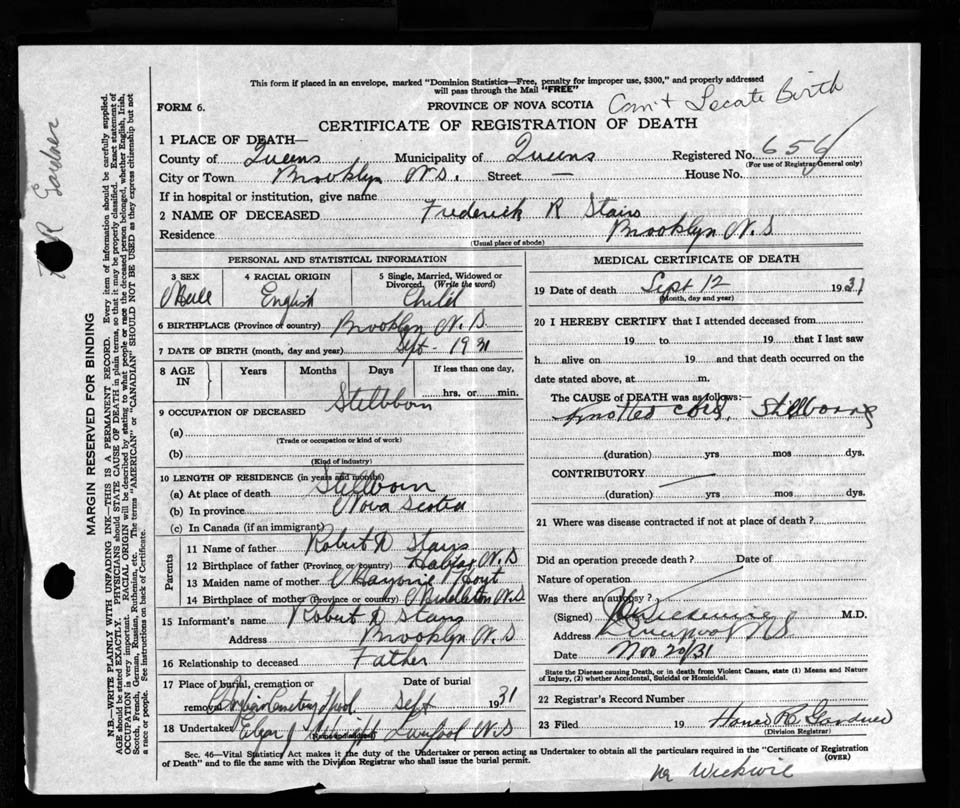 This form if placed in an envelope, marked "Dominion Statistics—Free, penalty for improper use, $300," and properly addressed
will pass through the Mail "FREE"
FORM 6.
PROVINCE OF NOVA SCOTIA
Can't Locate Birth
CERTIFICATE OF REGISTRATION OF DEATH
1 PLACE OF DEATH—
County of Queens Municipality of Queens Registered No. 656
(For use of Registrar General only)
City or Town Brooklyn N.S. Street — House No.
If in hospital or institution, give name
2 NAME OF DECEASED Frederick R Stairs
Residence Brooklyn N.S
(Usual place of abode)
PERSONAL AND STATISTICAL INFORMATION
3 SEX 4 RACIAL ORIGIN 5 Single, Married, Widowed or
Divorced (Write the word)
Male English Child
6 BIRTHPLACE (Province or country) Brooklyn N.S
7 DATE OF BIRTH (month, day and year) Sept - 1931
8 AGE IN Years Months Days If less than one day,
hrs. or min.
Stillborn
9 OCCUPATION OF DECEASED
(a)
(Trade or occupation or kind of work)
(b)
(Kind of industry)
10 LENGTH OF RESIDENCE (in years and months)
(a) At place of death Stillborn
(b) In province Nova Scotia
(c) In Canada (if an immigrant)
Parents
11 Name of father Robert D Stairs
12 Birthplace of father (Province or country) Halifax N.S
13 Maiden name of mother Hoyt
14 Birthplace of mother (Province or country) Middleton N.S
15 Informant's name Robert D Stairs
Address Brooklyn N.S
16 Relationship to deceased Father
17 Place of burial, cremation or Date of burial
removal Cemetery Lpool Sept 1931
18 Undertaker Edgar J Wright Liverpool N.S
MEDICAL CERTIFICATE OF DEATH
19 Date of death Sept 12 1931
(Month, day and year)
20 I HEREBY CERTIFY that I attended deceased from
19 to 19 that I last saw
h alive on 19 and that death occurred on the
date stated above, at m.
The CAUSE OF DEATH was as follows:—
Knotted cord. Stillborn
(duration) yrs mos dys.
CONTRIBUTORY
(duration) yrs mos dys.
21 Where was disease contracted if not at place of death?
Did an operation precede death? Date of
Nature of operation
Was there an autopsy?
(Signed) M.D.
Address Liverpool N.S
Date Nov 20/31
State the Disease causing Death, or in death from Violent Causes, state (1) Means and Nature
of Injury, (2) whether Accidental, Suicidal or Homicidal.
22 Registrar's Record Number
23 Filed 19 Gardner
(Division Registrar)
Sec. 46—Vital Statistics Act makes it the duty of the Undertaker or person acting as Undertaker to obtain all the particulars required in the "Certificate of Registration
of Death" and to file the same with the Division Registrar who shall issue the burial permit.
(OVER)
MARGIN RESERVED FOR BINDING
N.B.—WRITE PLAINLY WITH UNFADING INK—THIS IS A PERMANENT RECORD. Every item of information should be carefully supplied.
AGE should be stated EXACTLY. PHYSICIANS should STATE CAUSE OF DEATH in plain terms, so that it may be properly classified. Exact statement of
OCCUPATION is very important. RACIAL ORIGIN will be described by stating to what people or race the deceased person belonged, whether English, Irish,
Scotch, French, German, Russian, Ruthenian, etc. The terms "AMERICAN" or "CANADIAN" SHOULD NOT BE USED as they express citizenship but not
a race or people. See instructions on back of Certificate.